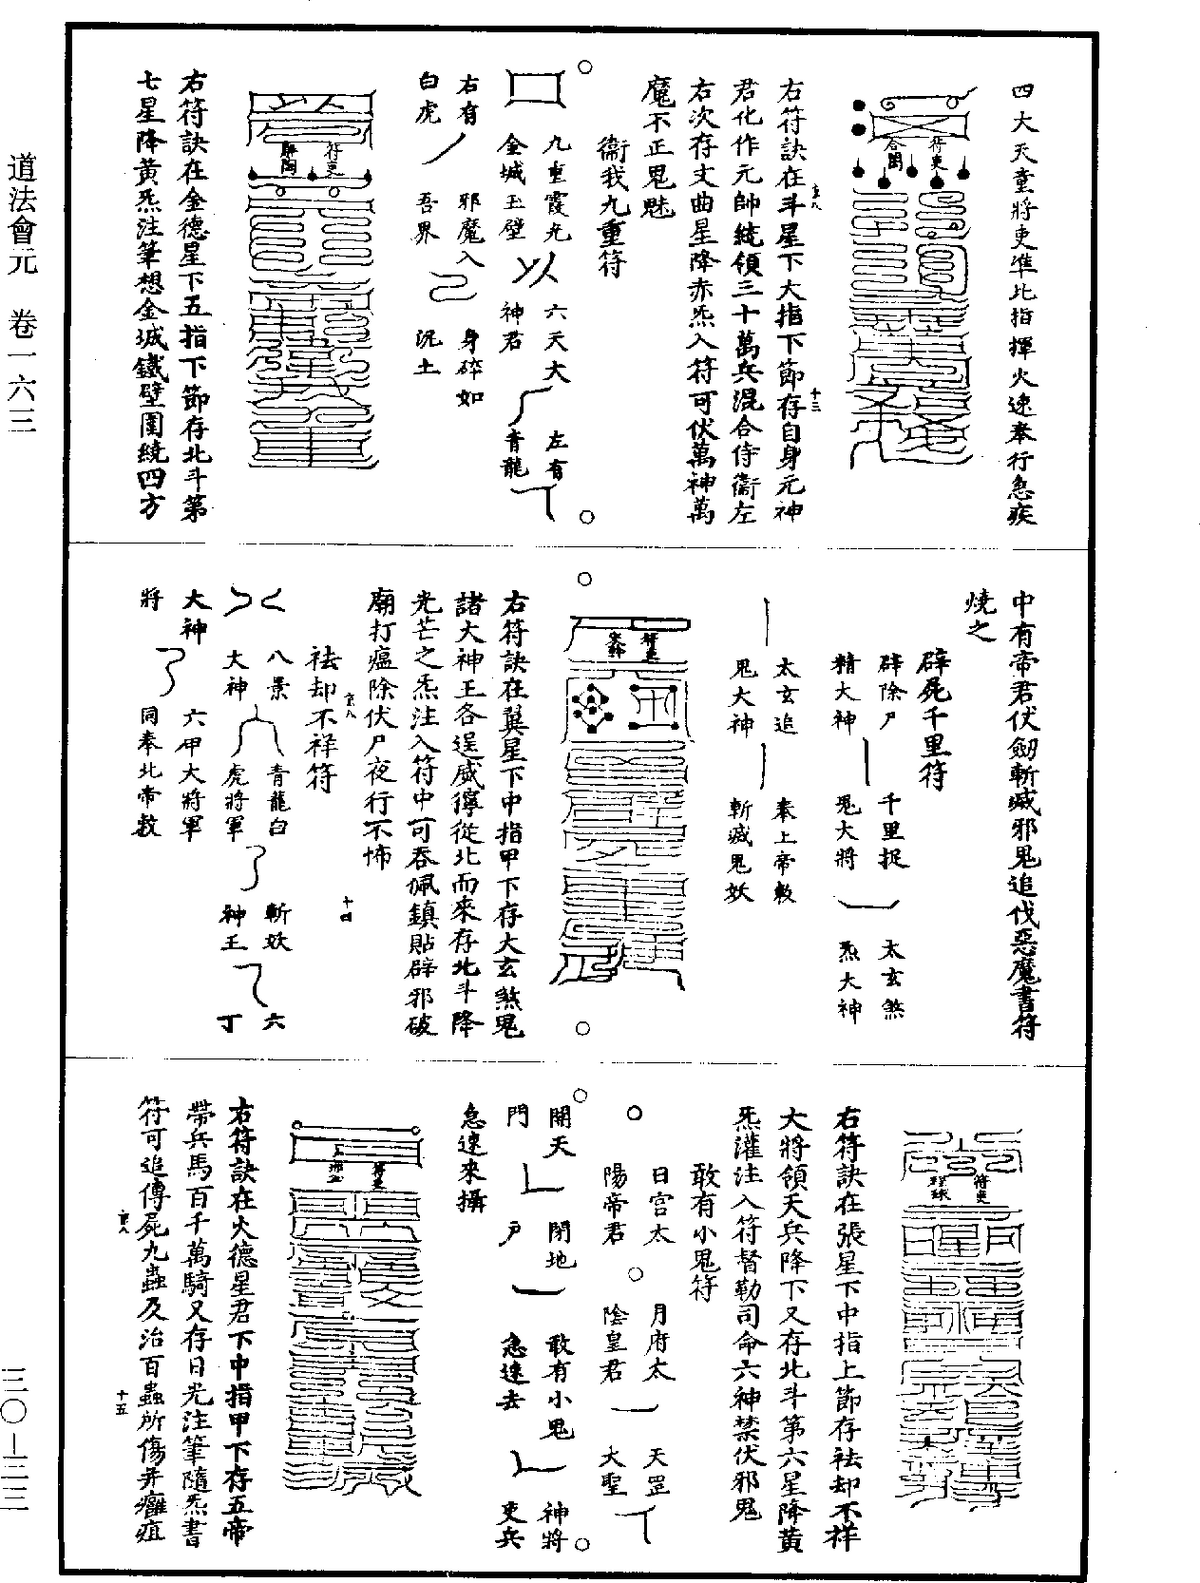 道法會元　卷一六三
三〇—三三
四大天童將吏準此指揮火速奉行急疾
符吏
右符訣在斗星下大指下節存自身元神
君化作元帥統領三十萬兵混合侍衞左
右次存文曲星降赤炁入符可伏萬神萬
魔不正鬼魅
衞我九重符
九重霞光
金城玉壁
六天大
神君
左有
青龍
右有
白虎
邪魔入
吾界
身碎如
泥土
符吏
右符訣在金德星下五指下節存北斗第
七星降黃炁注筆想金城鐵壁圍繞四方
中有帝君伏劒斬滅邪鬼追伐惡魔書符
燒之
辟屍千里符
辟除尸
精大神
千里捉
鬼大將
太玄煞
炁大神
太玄追
鬼大神
奉上帝敕
斬滅鬼妖
符吏
右符訣在翼星下中指甲下存大玄煞鬼
諸大神王各逞威獰從北而來存北斗降
光芒之炁注入符中可吞佩鎮貼辟邪破
廟打瘟除伏尸夜行不怖
祛却不祥符
八景
大神
青龍白
虎將軍
斬妖
神王
六
丁
大神
六甲大將軍
將
同奉北帝敕
符吏
右符訣在張星下中指上節存祛却不祥
大將領天兵降下又存北斗第六星降黃
炁灌注入符督勒司命六神禁伏邪鬼
敢有小鬼符
日宮太
陽帝君
月府太
陰皇君
天罡
大聖
開天
門
閉地
戶
敢有小鬼
急速去
神將
吏兵
急速來攝
符吏
右符訣在火德星君下中指甲下存五帝
帶兵馬百千萬騎又存日光注筆隨炁書
符可追傳屍九蟲及治百蟲所傷并癰疽
十三
十四
十五